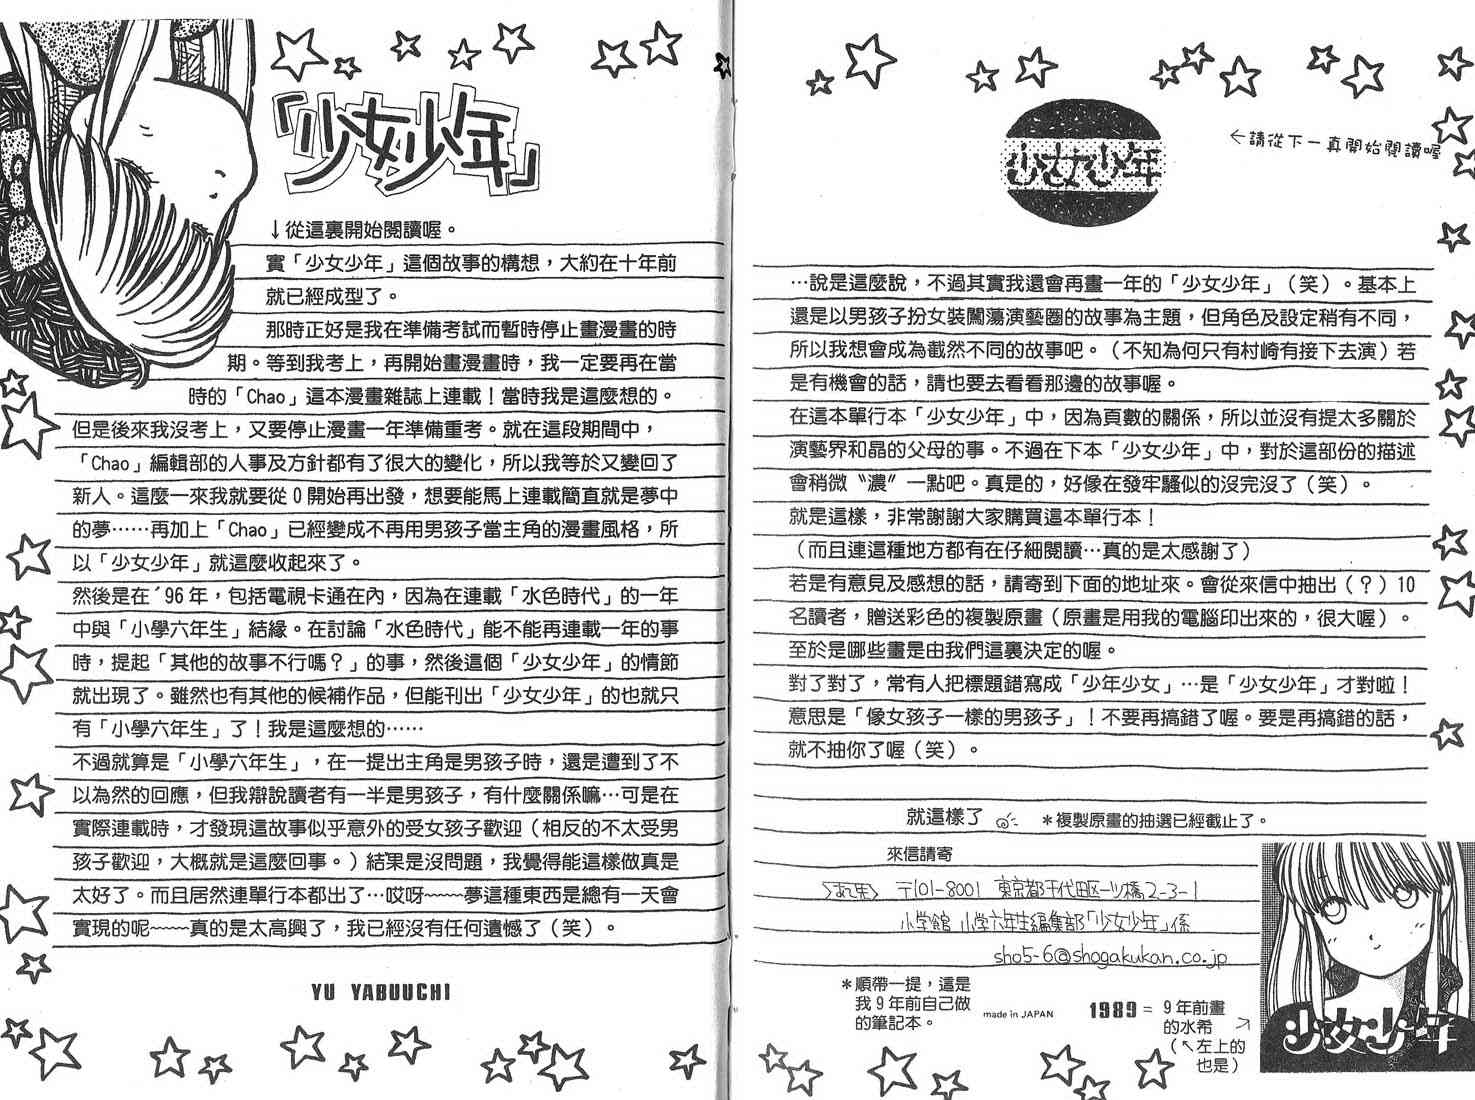 「少女少年」
↓從這裏開始閱讀喔。
實「少女少年」這個故事的構想，大約在十年前
就已經成型了。
那時正好是我在準備考試而暫時停止畫漫畫的時
期。等到我考上，再開始畫漫畫時，我一定要再在當
時的「Chao」這本漫畫雜誌上連載！當時我是這麼想的。
但是後來我沒考上，又要停止漫畫一年準備重考。就在這段期間中，
「Chao」編輯部的人事及方針都有了很大的變化，所以我等於又變回了
新人。這麼一來我就要從０開始再出發，想要能馬上連載簡直就是夢中
的夢……再加上「Chao」已經變成不再用男孩子當主角的漫畫風格，所
以「少女少年」就這麼收起來了。
然後是在´96年，包括電視卡通在內，因為在連載「水色時代」的一年
中與「小學六年生」結緣。在討論「水色時代」能不能再連載一年的事
時，提起「其他的故事不行嗎？」的事，然後這個「少女少年」的情節
就出現了。雖然也有其他的候補作品，但能刊出「少女少年」的也就只
有「小學六年生」了！我是這麼想的……
不過就算是「小學六年生」，在一提出主角是男孩子時，還是遭到了不
以為然的回應，但我辯說讀者有一半是男孩子，有什麼關係嘛…可是在
實際連載時，才發現這故事似乎意外的受女孩子歡迎（相反的不太受男
孩子歡迎，大概就是這麼回事。）結果是沒問題，我覺得能這樣做真是
太好了。而且居然連單行本都出了…哎呀~~~夢這種東西是總有一天會
實現的呢~~~真的是太高興了，我已經沒有任何遺憾了（笑）。
YU YABUUCHI
少女少年
←請從下一真開始閱讀喔
…說是這麼說，不過其實我還會再畫一年的「少女少年」（笑）。基本上
還是以男孩子扮女裝闖蕩演藝圈的故事為主題，但角色及設定稍有不同，
所以我想會成為截然不同的故事吧。（不知為何只有村崎有接下去演）若
是有機會的話，請也要去看看那邊的故事喔。
在這本單行本「少女少年」中，因為頁數的關係，所以並沒有提太多關於
演藝界和晶的父母的事。不過在下本「少女少年」中，對於這部份的描述
會稍微〝濃〞一點吧。真是的，好像在發牢騷似的沒完沒了（笑）。
就是這樣，非常謝謝大家購買這本單行本！
（而且連這種地方都有在仔細閱讀…真的是太感謝了）
若是有意見及感想的話，請寄到下面的地址來。會從來信中抽出（？）10
名讀者，贈送彩色的複製原畫（原畫是用我的電腦印出來的，很大喔）。
至於是哪些畫是由我們這裏決定的喔。
對了對了，常有人把標題錯寫成「少年少女」…是「少女少年」才對啦！
意思是「像女孩子一樣的男孩子」！不要再搞錯了喔。要是再搞錯的話，
就不抽你了喔（笑）。
就這樣了
＊複製原畫的抽選已經截止了。
來信請寄
〈あて先〉 〒101-8001 東京都千代田区一ツ橋2-3-1
小学館 小学六年生編集部「少女少年」係
sho5-6@shogakukan.co.jp
＊順帶一提，這是
我９年前自己做
的筆記本。
made in JAPAN
1989 = 9年前畫
的水希
（↖左上的
也是）
少女少年